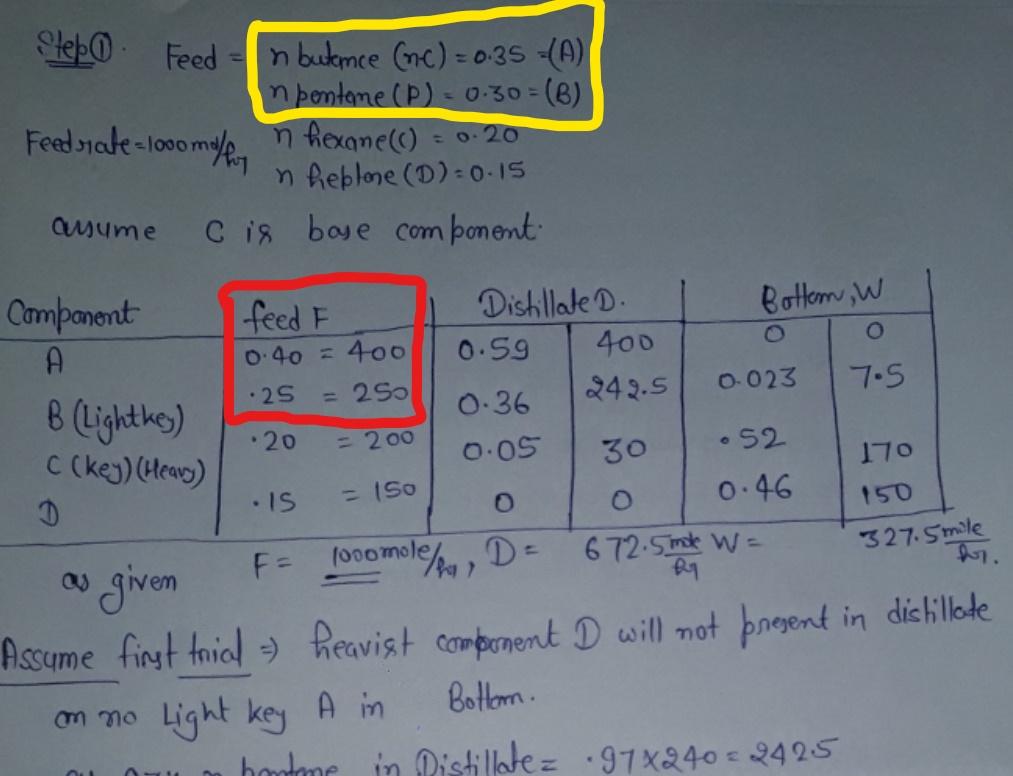 Step ①. Feed = n butance (nc) = 0.35 = (A)
n pentane (P) = 0.30 = (B)
Feed rate = 1000 mol/hr n hexane (C) = 0.20
n heptone (D) = 0.15
assume C is base component.
Component feed F Distillate D. Bottom, W
A 0.40 = 400 0.59 400 0 0
B (Light key) .25 = 250 0.36 242.5 0.023 7.5
C (key) (Heavy) .20 = 200 0.05 30 .52 170
D .15 = 150 0 0 0.46 150
as given F = 1000 mole/hr, D = 672.5 mole/hr W = 327.5 mole/hr.
Assume first trial ⇒ heavist component D will not present in distillate
on no Light key A in Bottom.
in Distillate = .97 x 240 = 242.5